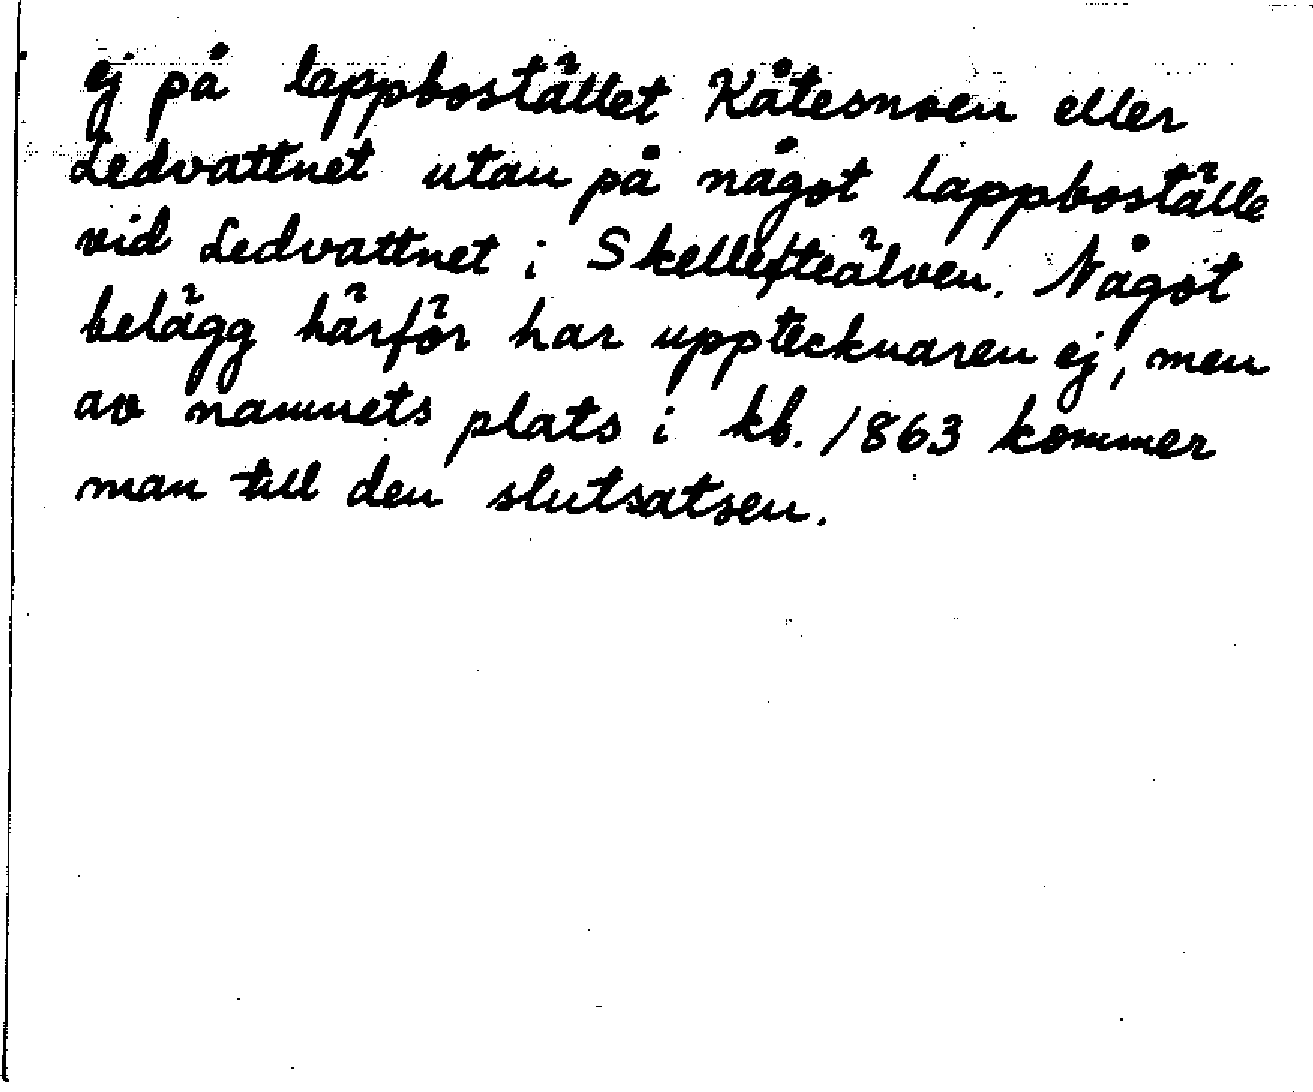 ej på lappbostället Kåtesnoen eller
Ledvattnet utan på något lappboställe
vid Ledvattnet i Skellefteälven. Något
belägg härför har upptecknaren ej, men
av namnets plats i kb. 1863 kommer
man till den slutsatsen.